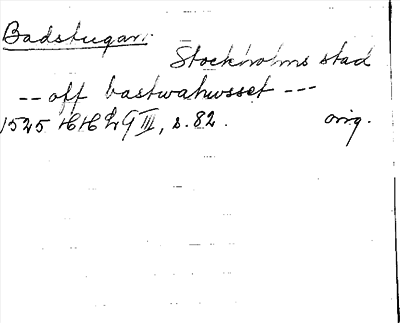 Badstugan.
Stockholms stad
-- off bastwahwsset ---
1525 HH Lr G III, s. 82. orig.